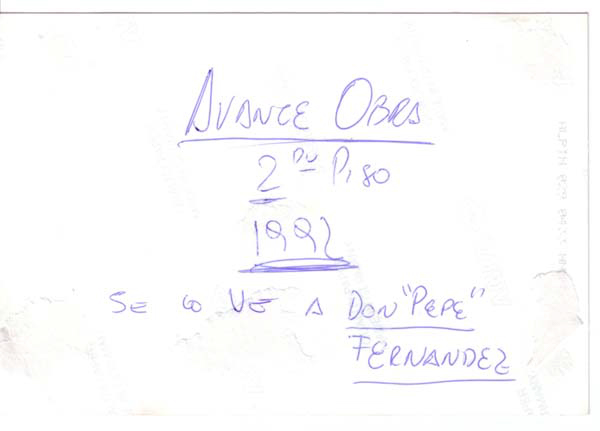 AVANCE OBRA
2DO PISO
1992
SE LO VE A DON "PEPE"
FERNANDEZ